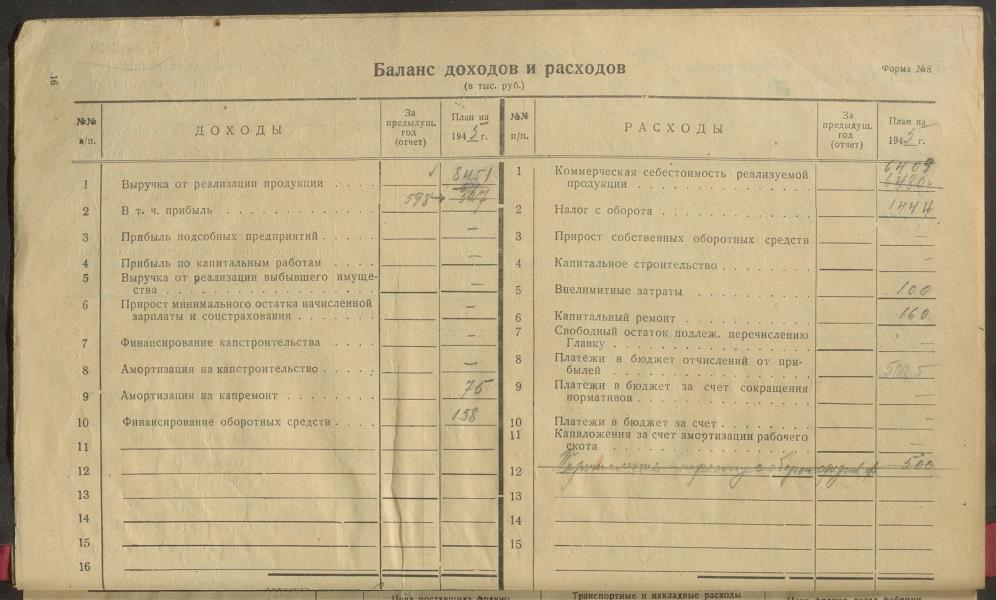 16
Баланс доходов и расходов
(в тыс. руб.)
Форма №8
№№ п/п.
ДОХОДЫ
За предыдущ. год (отчет)
План на 1945 г.
1 Выручка от реализации продукции 8451
2 В т. ч. прибыль 598
3 Прибыль подсобных предприятий —
4 Прибыль по капитальным работам —
5 Выручка от реализации выбывшего имуще-
ства —
6 Прирост минимального остатка начисленной
зарплаты и соцстрахования —
7 Финансирование капстроительства —
8 Амортизация на капстроительство —
9 Амортизация на капремонт 75
10 Финансирование оборотных средств 158
11
12
13
14
15
16
№№ п/п.
РАСХОДЫ
За предыдущ. год (отчет)
План на 1945 г.
1 Коммерческая себестоимость реализуемой 6409
продукции 6480
2 Налог с оборота 1444
3 Прирост собственных оборотных средств —
4 Капитальное строительство —
5 Внелимитные затраты 100
6 Капитальный ремонт 160
7 Свободный остаток подлеж. перечислению
Главку —
8 Платежи в бюджет отчислений от при-
былей
9 Платежи в бюджет за счет сокращения
нормативов —
10 Платежи в бюджет за счет —
11 Капвложения за счет амортизации рабочего
скота —
12 500
13
14
15
Цена поставщика франко
Транспортные и накладные расходы
Цена франко склад фабрики